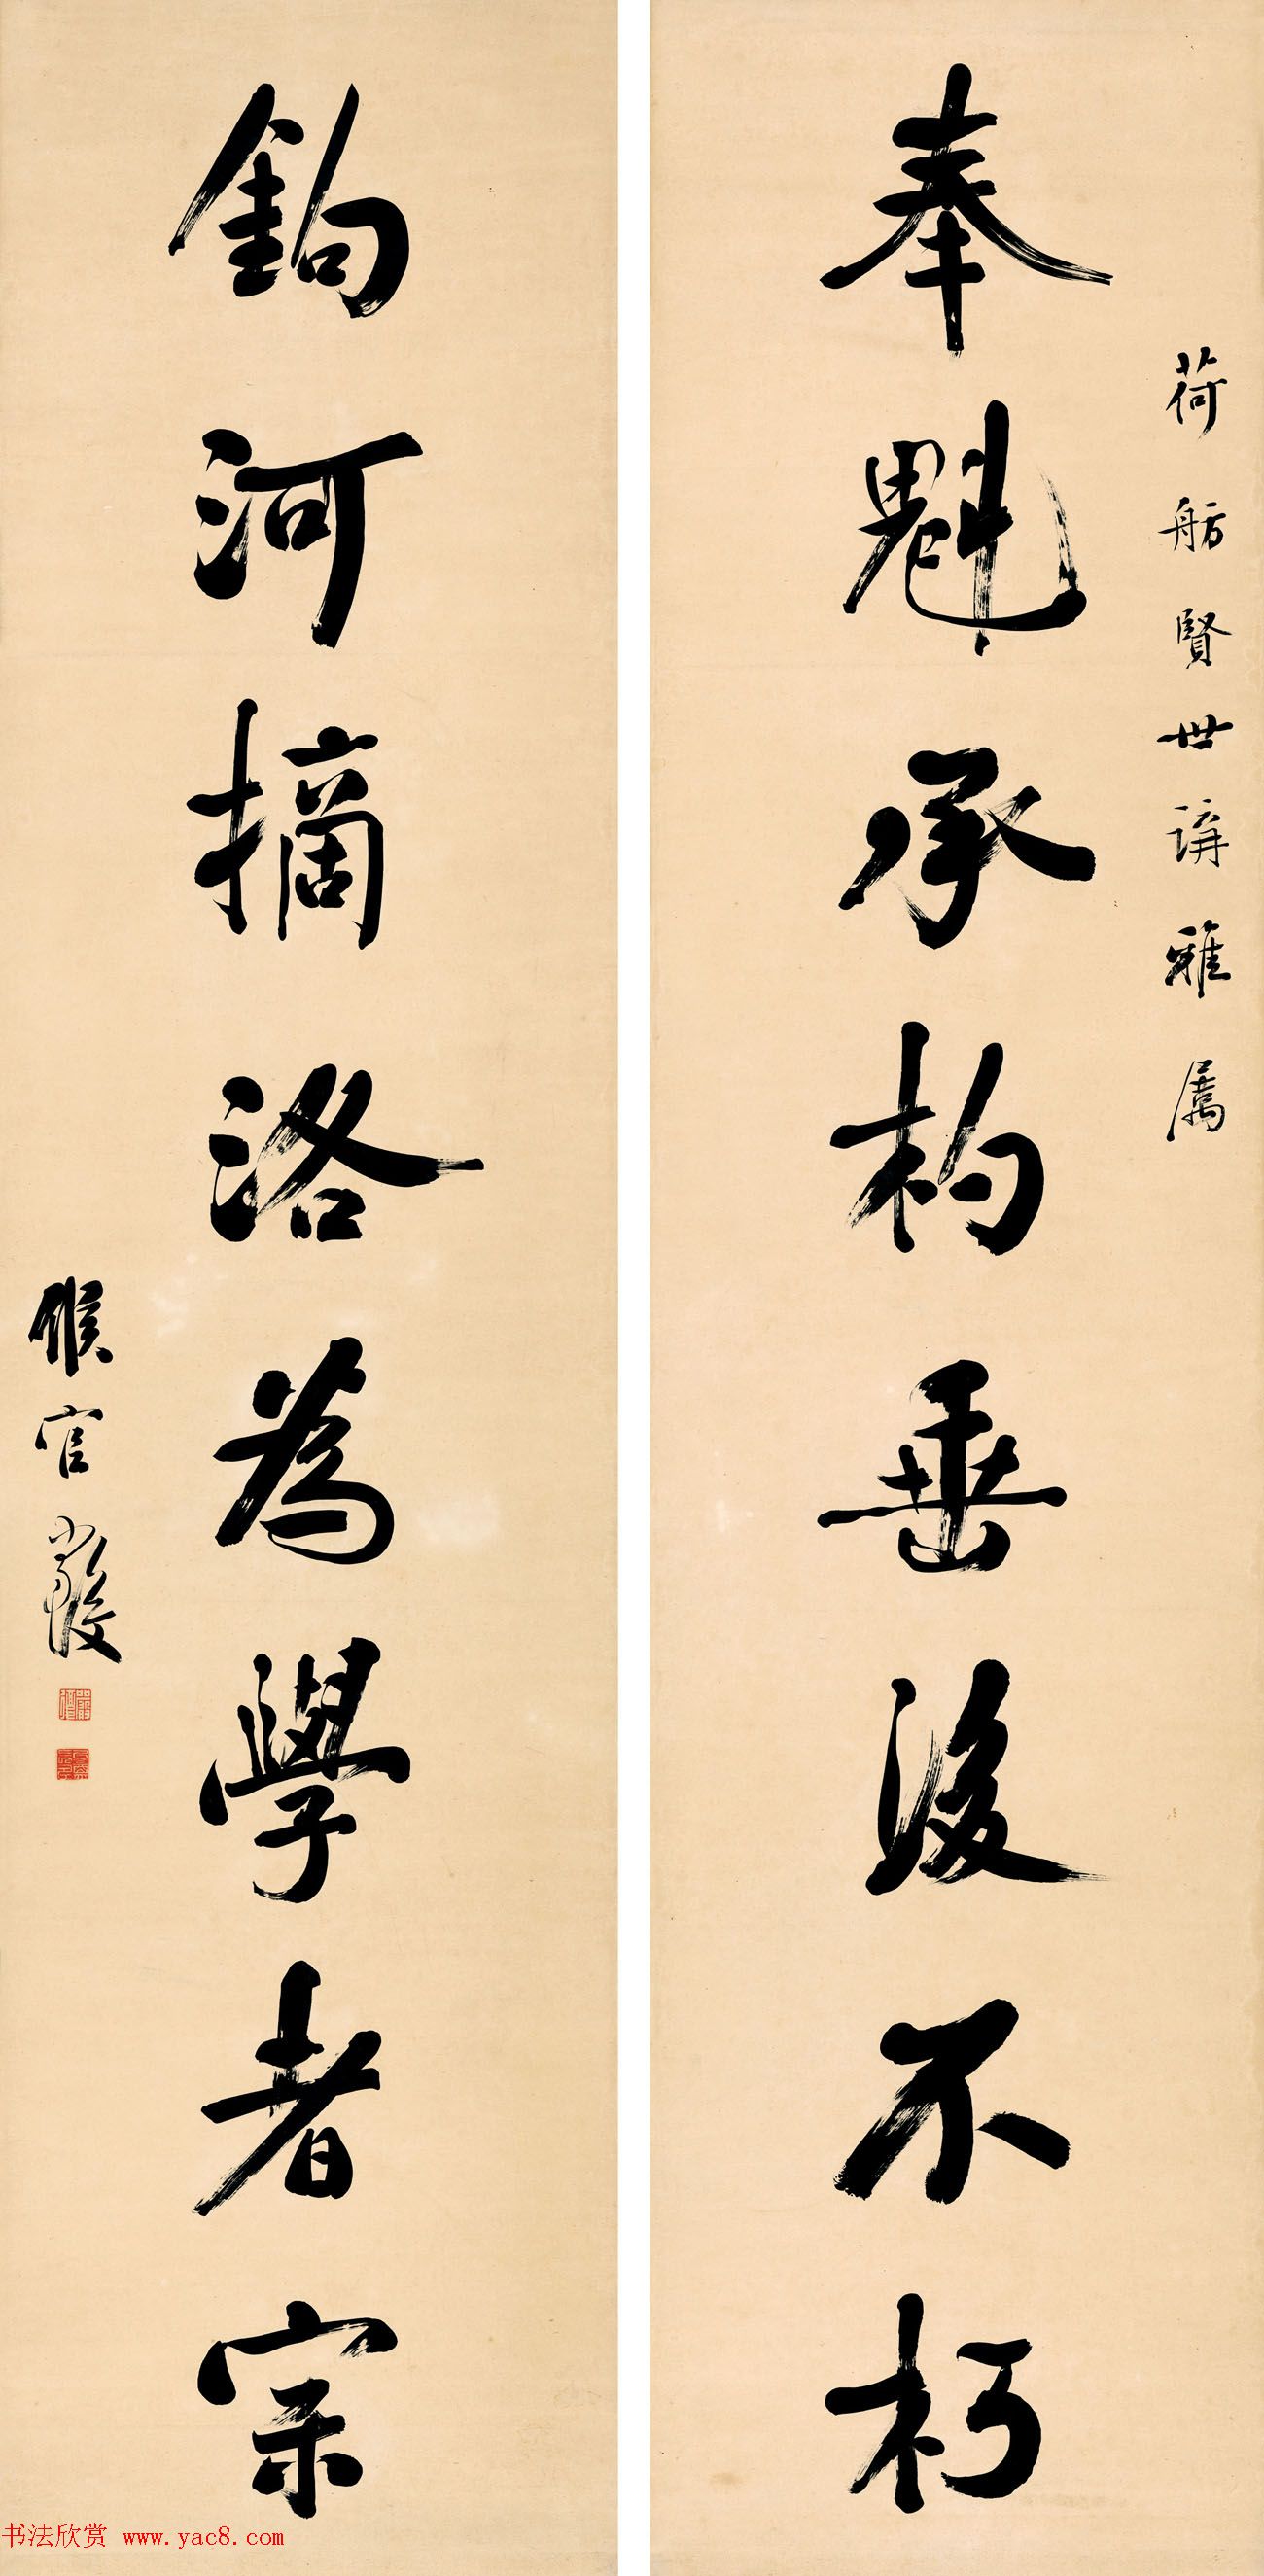 荷舫賢世講雅屬
奉魁承杓垂後不朽
鉤河摘洛為學者宗
候官嚴復
书法欣赏 www.yac8.com